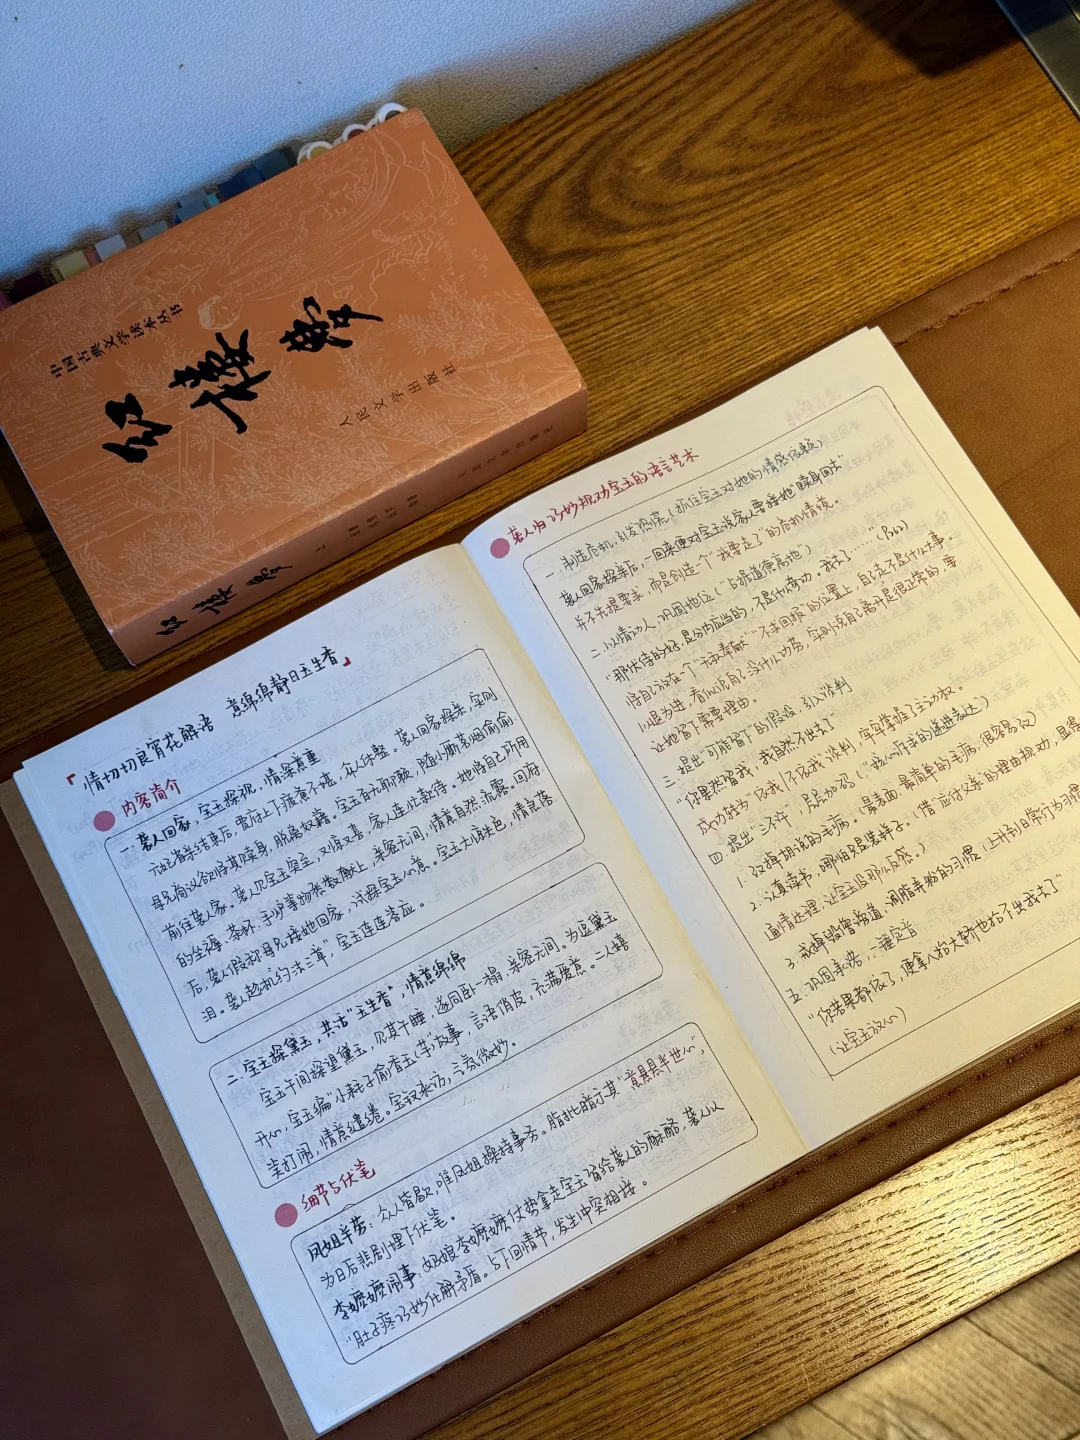 中国古典文学读本丛书
红楼梦
人民文学出版社
红楼梦
上
人民文学出版社
「情切切良宵花解语 意绵绵静日玉生香」
内容简介
一. 袭人回家，宝玉探视，情深意重
元妃省亲结束后，贾府上下疲惫不堪，众人休整。袭人回家探亲，实则
母兄商议欲将其赎身，脱离奴籍。宝玉百无聊赖，随小厮茗烟偷偷
前往袭人家。袭人见宝玉突至，又惊又喜，家人连忙款待。她将自己所用
的坐褥、茶杯、手炉等物悉数献上，亲密无间，情意自然流露。回府
后，袭人假称母兄接她回家，试探宝玉心意。宝玉大惊失色，情急落
泪。袭人趁机约法三章，宝玉连连答应。
二. 宝玉探黛玉，共话“玉生香”，情意绵绵
宝玉午间探望黛玉，见其午睡，遂同卧一榻，亲密无间。为逗黛玉
开心，宝玉编“小耗子偷香玉(芋)”故事，言语俏皮，充满爱意。二人嬉
笑打闹，情意缱绻。宝钗来访，三氛微妙。
细节与伏笔
凤姐辛劳：众人皆歇，唯凤姐操持事务。脂批暗示其“意悬悬半世心”，
为日后悲剧埋下伏笔。
李嬷嬷闹事：奶娘李嬷嬷仗势拿走宝玉留给袭人的酥酪，袭人以
“肚子疼”巧妙化解矛盾。与下回情节，发生冲突相接。
袭人归巧妙规劝宝玉的语言艺术
一. 制造危机，引发恐慌(抓住宝玉对她的情感依赖)
袭人回家探亲后，一回来便对宝玉说家人要接她“赎身回去”
并不先提要求，而是创造一个“我要走了”的危机情境。
二. 以情动人，巩固地位(“占据道德高地”)
“那伏侍的好，是分内应当的，不是什么奇功。我去了……”(P262)
将自己放在一个“无私奉献”“不求回报”的位置上，自己走不是什么大事。
以退为进，看似说自己没什么功劳，实则说自己离开是很正常的，要
让她留下需要理由。
三. 提出“可能留下”的假设，引入谈判
“你果然留我，我自然不出去了”
成功转为“依我/不依我”谈判，牢牢掌握了主动权。
四. 提出“三不许”，层层加码(“核心诉求的递进表达)
1. 改掉胡说的毛病。(最表面、最简单的毛病，很容易改)
2. 认真读书，哪怕只是装样子。(借“应付父亲”的理由规劝，显得
通情达理，让宝玉没那么反感。)
3. 戒掉毁僧谤道，调脂弄粉的习惯(上升到日常行为习惯
五. 巩固承诺，一锤定音
“你若果都依了，便拿八人轿也抬不出我去了”
(让宝玉放心)